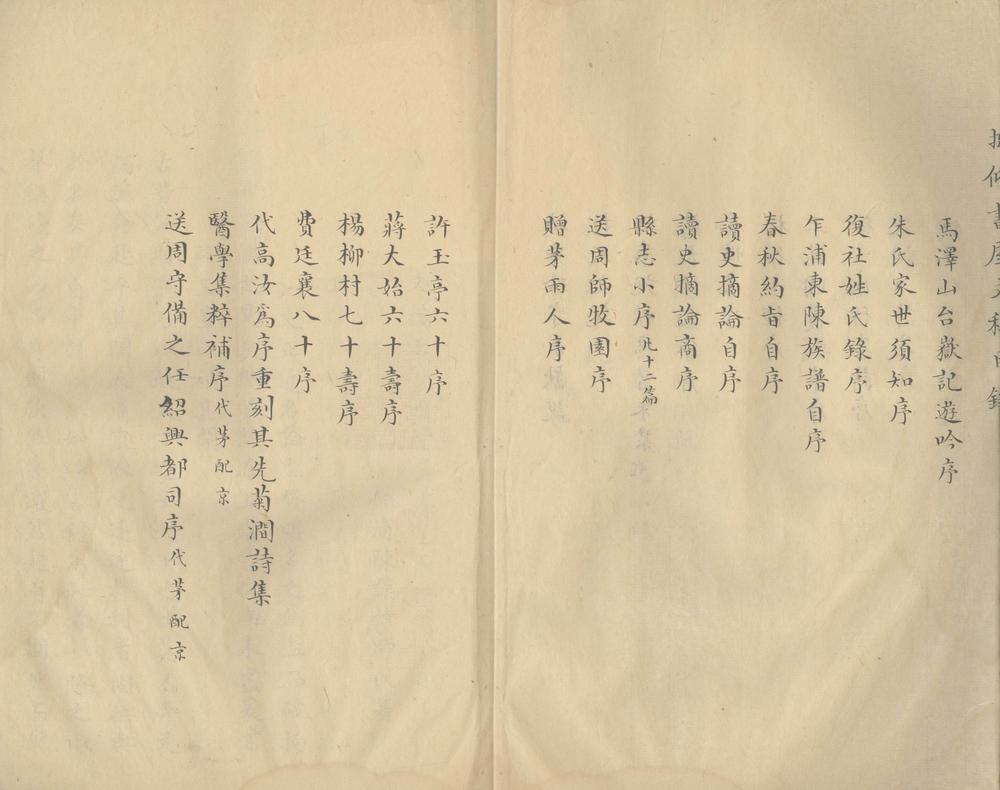 馬澤山台嶽記遊吟序
朱氏家世須知序
復社姓氏錄序
乍浦東陳族譜自序
春秋約旨自序
讀史摘論自序
讀史摘論商序
縣志小序凡十二篇
送周師牧園序
贈茅雨人序
許玉亭六十序
蔣大始六十壽序
楊柳村七十壽序
費廷襄八十序
代高汝為序重刻其先菊澗詩集
醫學集粹補序代茅配京
送周守備之任紹興都司序代茅配京